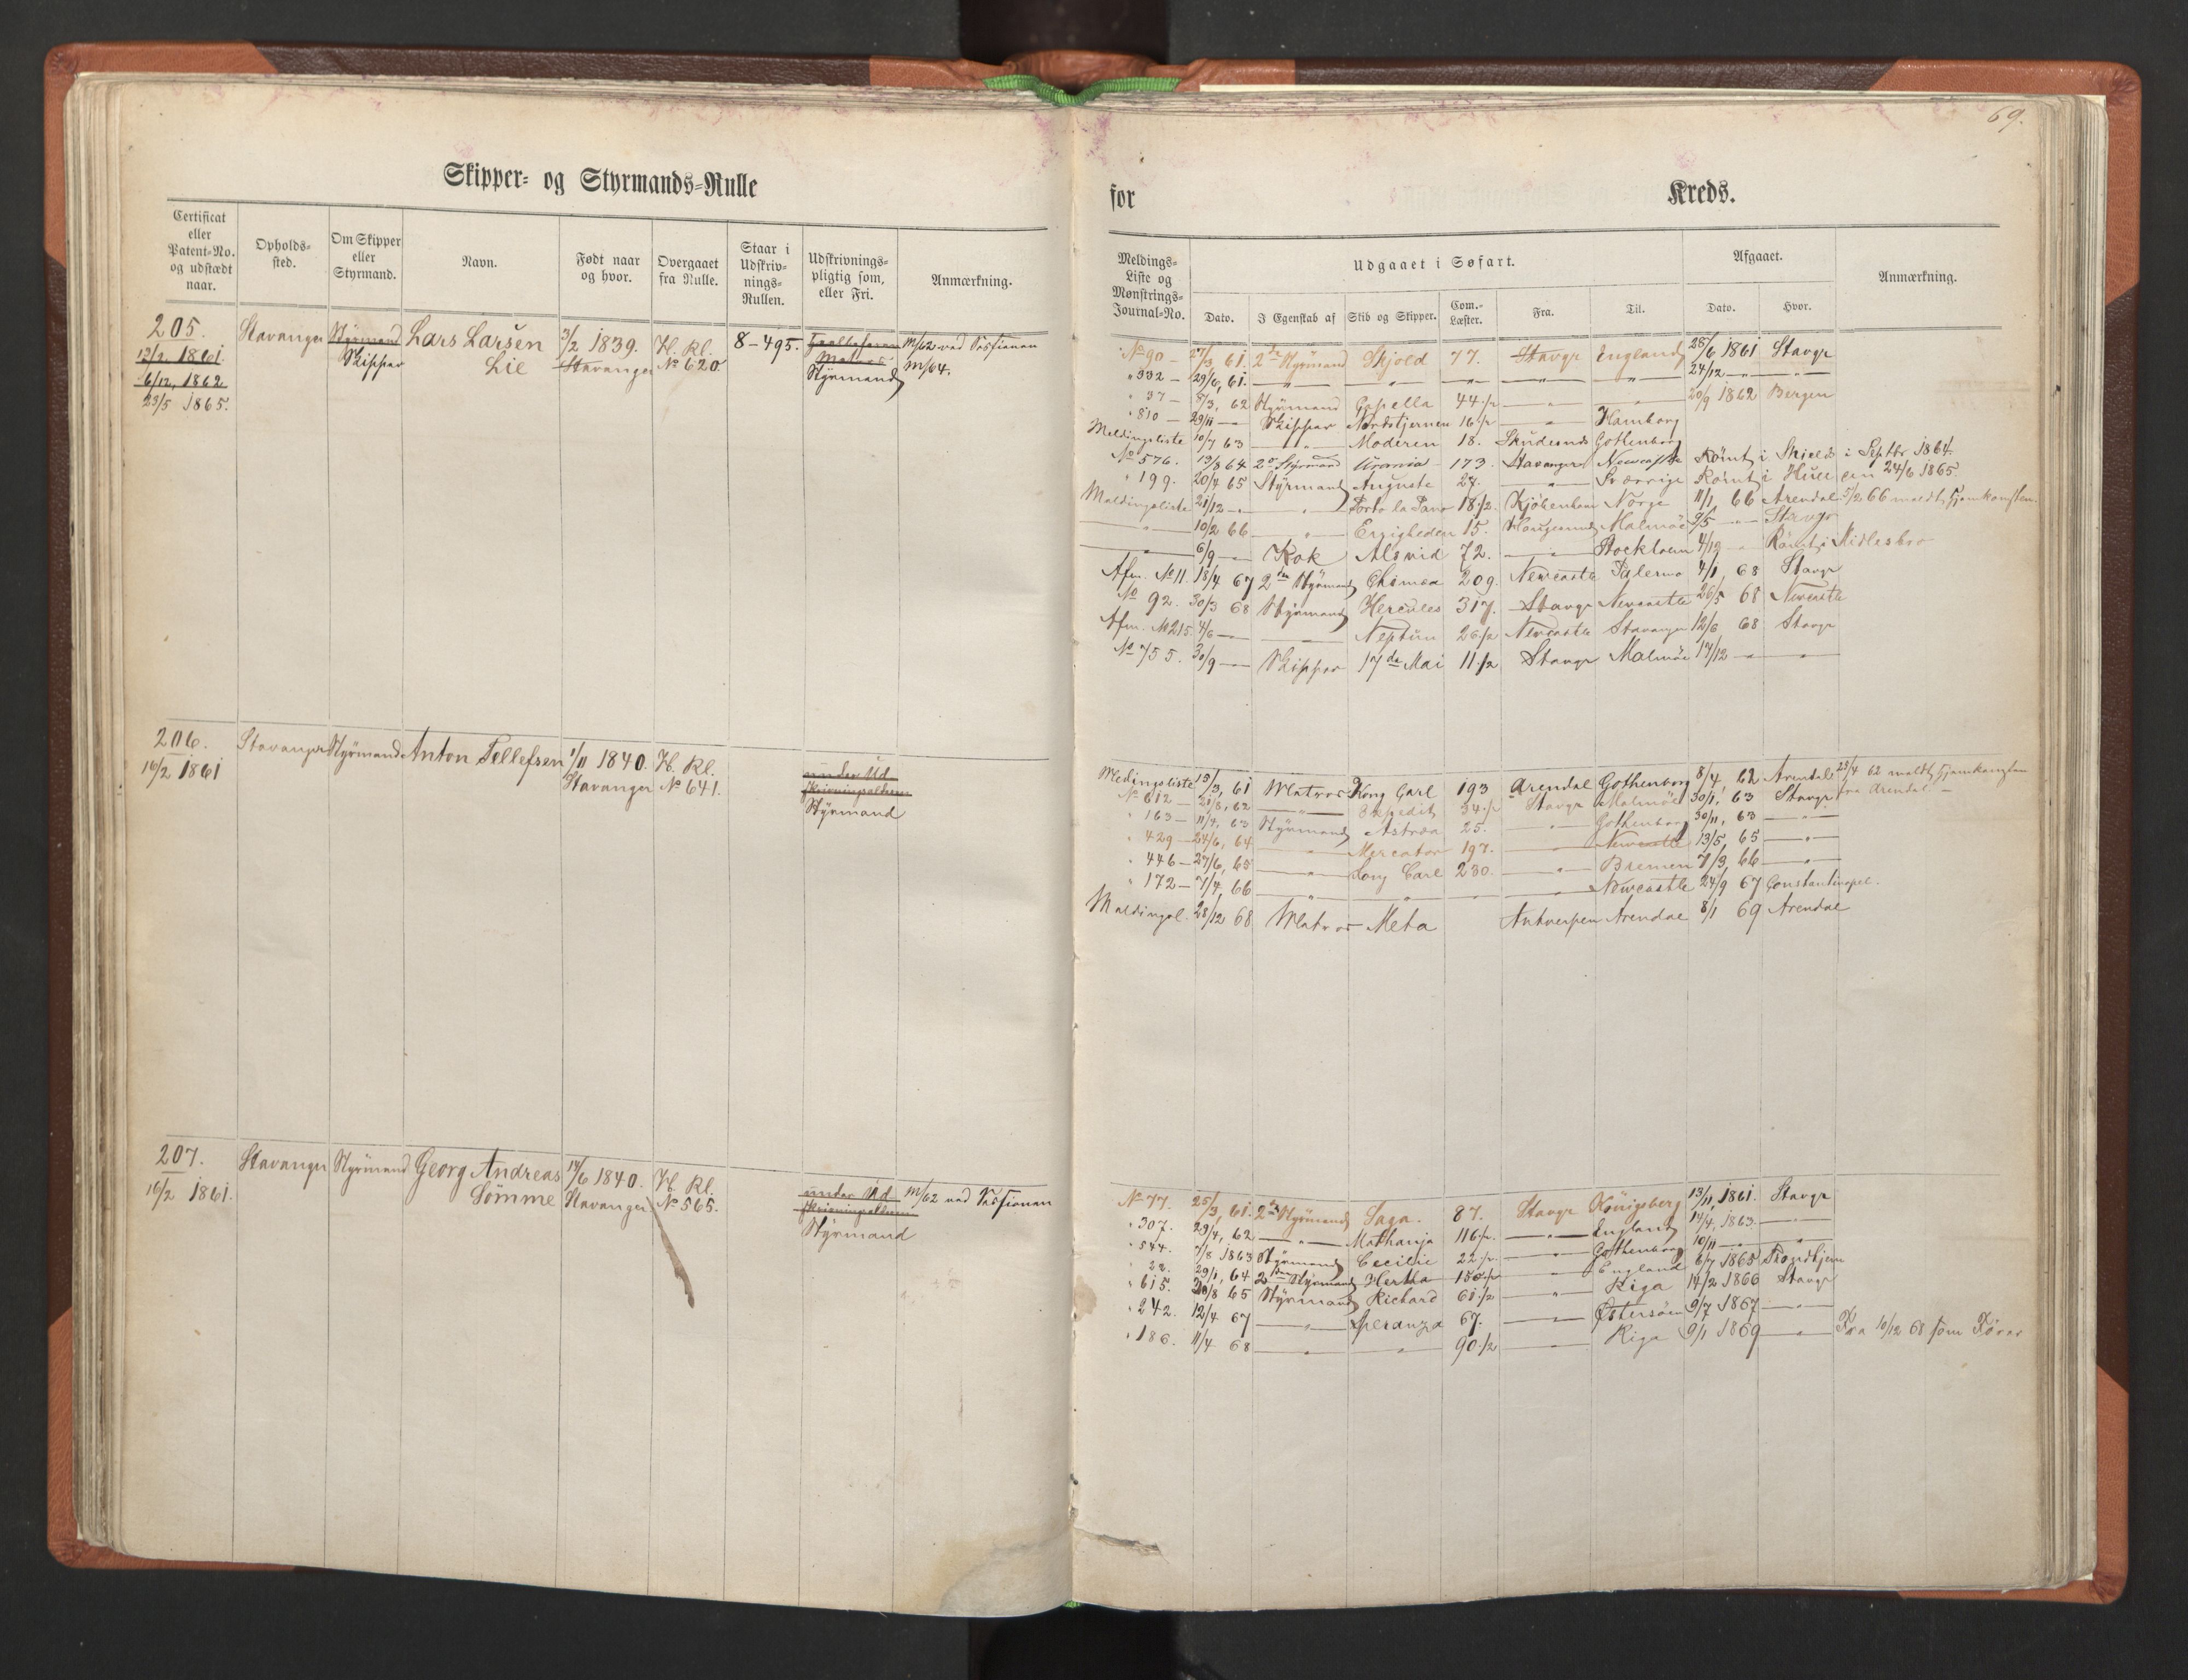 69.
Skipper- og Styrmands-Rulle
for Kreds.
Certificat eller Patent-No. og udstædt naar.
Opholds-sted.
Om Skipper eller Styrmand.
Navn.
Født naar og hvor.
Overgaaet fra Rulle.
Staar i Udskriv-nings-Rullen.
Udskrivnings-pligtig som, eller Fri.
Anmærkning.
Meldings-Liste og Mønstrings-Journal-No.
Udgaaet i Søfart.
Dato.
I Egenskab af
Skib og Skipper.
Com.-Læster.
Fra.
Til.
Afgaaet.
Dato.
Hvor.
Anmærkning.
205.
13/2 1861.
6/12, 1862
23/5 1865.
Stavanger
Styrmand
Skipper
Lars Larsen
Lie
3/2 1839.
Stavanger
H. Kl.
No 620
8-495.
Matros
Styrmand
M/62 ved
M/64.
No 90 - 27/3, 61. 2den Styrmand Skjold 77. Stavgr England 28/6 1861 Stavgr
" 332 - 29/6, 61. — " — — " — — " — — " — — " — 24/12 — " — — " —
" 37 - 5/3, 62 Styrmand Capella 44 1/2 — " — — " — 20/9 1862 Bergen
" 810 - 29/11 — Skipper Nordstjernen 16 1/2 — " — Hamborg
Meldingsliste 10/7 63 — " — Moderen 18. Skudesnds Gothenborg
No 576. 13/8 64 2den Styrmand Urania 173. Stavanger Newcastle Rømt i Shields i Septbr 1864.
" 199. 20/4 65 Styrmand Auguste 27. — " — Sverrige Rømt i Hull den 24/6 1865.
Meldingsliste 21/12 — " — 18 1/2. Kjøbenhavn Norge 11/1 66 Arendal 5/2 66 meldt Hjemkomsten.
— " — 10/2 66 — " — Enigheden 15. Haugesund Malmöe 9/5 — " — Stavgr
— " — 6/9 — Kok Alsvid 72. — " — Stockholm 4/12 — Rømt i Midlesbro
Afm. No 11. 18/4 67 2den Styrmand 209. Newcastle Palermo 4/1, 68 Stavgr
No 92. 30/3 68 Styrmand Hercules 317. Stavgr Newcastle 26/5 68 Newcastle
Afm. No 215 4/6 — — Neptun 26 1/2 Newcastle Stavanger 12/6 68 Stavgr
No 755. 30/9 — Skipper 17de Mai 11 1/2 Stavgr Malmöe 17/12 — " — — " —
206.
16/2 1861
Stavanger
Styrmand
Anton Tellefsen
1/11 1840.
Stavanger
H. Kl.
No 641.
under Ud-
skrivningsalderen
Styrmand
Meldingsliste 13/3, 61 Matros Kong Carl 193 Arendal Gothenborg 8/4, 62 Arendal 25/4 62 meldt Hjemkomsten fra Arendal. —
No 612 — 21/8, 62 — " — Expedit 34 1/2 Stavgr Malmöe 30/1, 63 Stavgr
" 163 — 11/4, 63 Styrmand Astræa 25. — " — Gothenborg 30/11, 63 — " —
" 429 — 24/6, 64 — " — Mercator 197. — " — Newcastle 13/5, 65 — " —
" 446 — 27/6, 65 — " — Kong Carl 230. — " — Bremen 7/3, 66 — " —
" 172 — 7/4, 66 — " — — " — — " — — " — Newcastle 24/9 67 Constantinopel.
Meldingsl. 28/12 68 Matros Meta Antverpen Arendal 8/1 69 Arendal
207.
16/2 1861.
Stavanger
Styrmand
Georg Andreas
Sömme
14/6 1840.
Stavanger
H. Kl.
No 565.
under Ud-
skrivningsalderen
Styrmand
M/62 ved
No 77. 25/3, 61. 2den Styrmand Saga. 87. Stavgr Königsberg 13/11, 1861. Stavgr
" 307. 29/4, 62 — " — Mathanja 116 1/2. — " — England 14/4, 1863. — " —
" 544. 7/8 1863 Styrmand Cecilie 22 1/2. — " — Gothenborg 10/11 — " — — " —
" 22. 29/1, 64 2den Styrmand Hertha 150 1/2 — " — England 6/7 1865 Trondhjem
" 615. 30/8 65 Styrmand Richard 61 1/2 — " — Riga 14/2 1866 Stavgr
" 242. 12/4 67 — " — Speranza 67. — " — Østersöen 9/7 1867 — " —
" 186. 11/4 68 — " — — " — 90 1/2 — " — Riga 9/1 1869 — " — Fra 10/12 68 som Fører